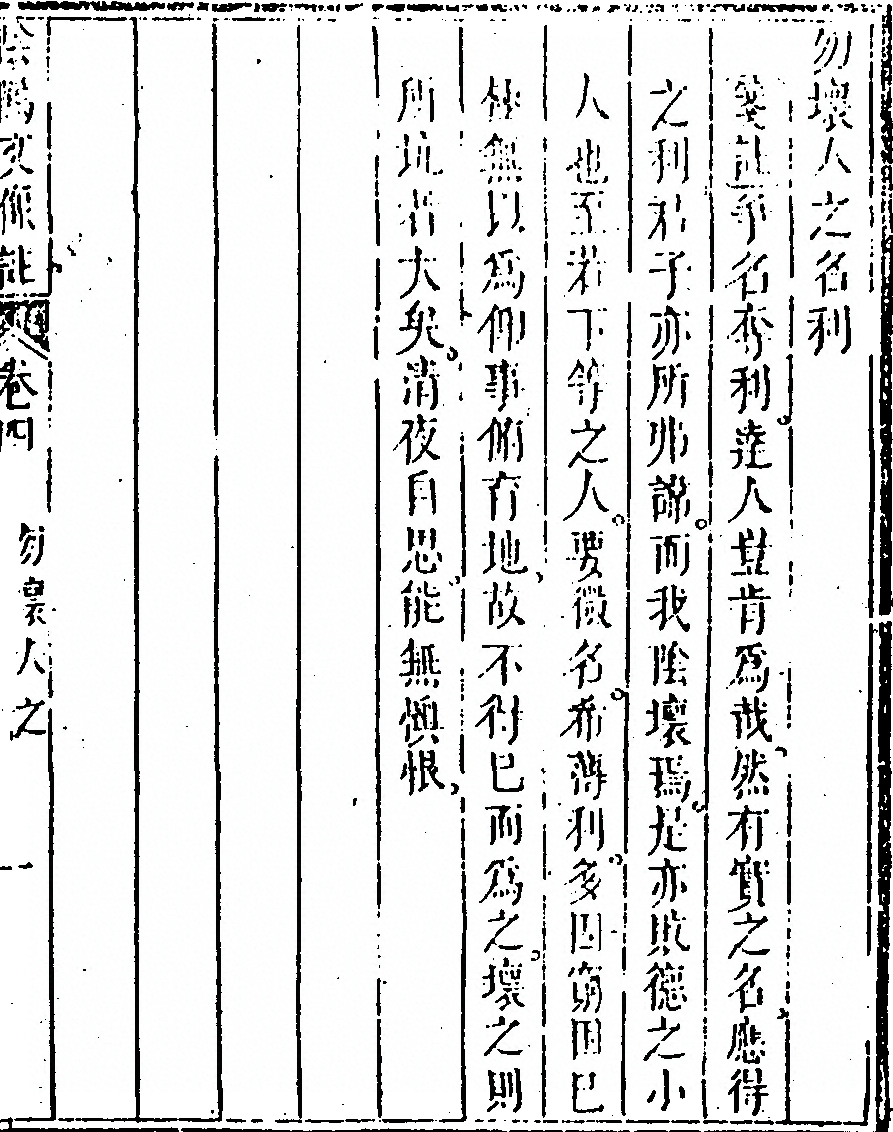 勿壞人之名利
箋註爭名奪利達人豈肯爲哉然有實之名應得
之利君子亦所弗諼而我陰壞焉是亦敗德之小
人也至若下等之人要微名希薄利多因窮困已
極無以爲仰事俯育地故不得已而爲之壞之則
所坑者大矣清夜自思能無懊恨
陰騭文像註 卷四 勿壞人之 一